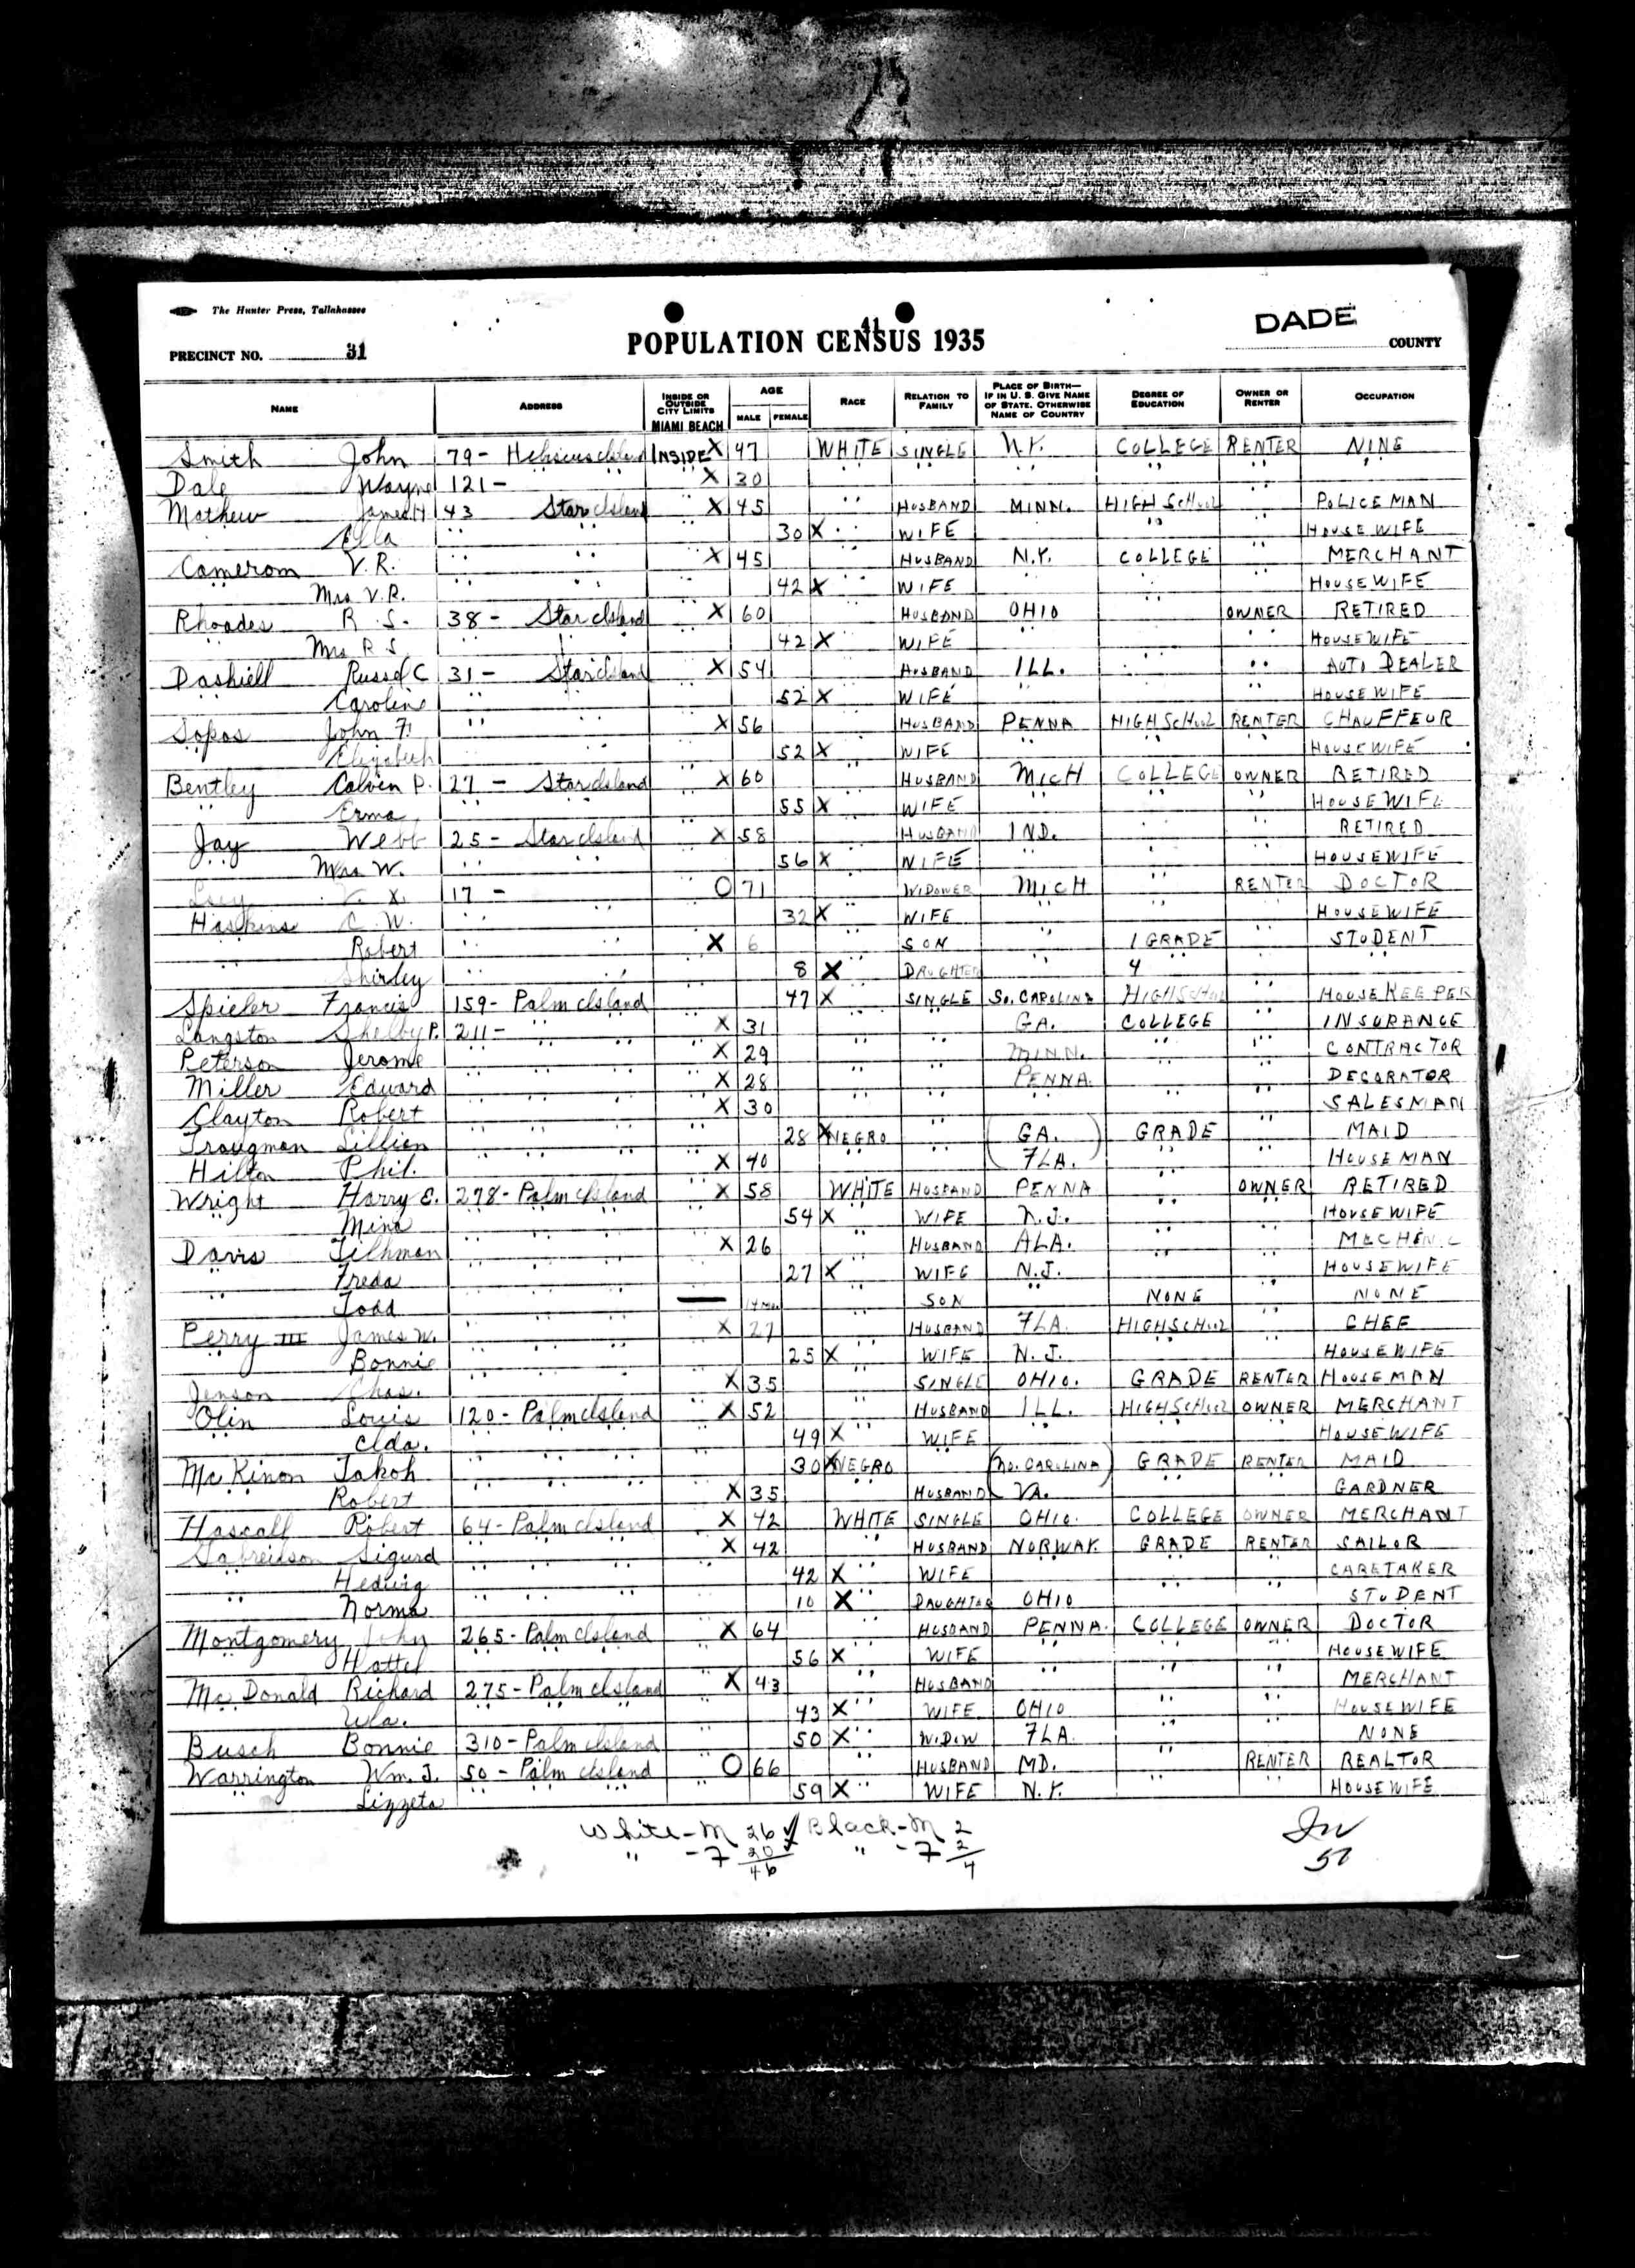 The Hunter Press, Tallahassee
41
DADE
PRECINCT NO. 31 POPULATION CENSUS 1935 COUNTY
NAME ADDRESS INSIDE OR OUTSIDE CITY LIMITS MIAMI BEACH AGE MALE FEMALE RACE RELATION TO FAMILY PLACE OF BIRTH—IF IN U. S. GIVE NAME OF STATE. OTHERWISE NAME OF COUNTRY DEGREE OF EDUCATION OWNER OR RENTER OCCUPATION
Smith John 79 - Island INSIDE X 47 WHITE SINGLE N.Y. COLLEGE RENTER NINE
Dale Wayne 121 - " X 30 " " " "
Mathew James H 43 Star Island " X 45 " HUSBAND MINN. HIGH SCHOOL " POLICEMAN
" Ella " " " 30 X " WIFE " " " HOUSEWIFE
Cameron V.R. " " " X 45 " HUSBAND N.Y. COLLEGE " MERCHANT
" Mrs V.R. " " " 42 X " WIFE " " " HOUSEWIFE
Rhoades R. S. 38 - Star Island " X 60 " HUSBAND OHIO " OWNER RETIRED
" Mrs R S. " " " 42 X " WIFE " " " HOUSEWIFE
Dashiell Russel C 31 - Star Island " X 54 " HUSBAND ILL. " " AUTO DEALER
" Caroline " " " 52 X " WIFE " " " HOUSEWIFE
Sopas John F. " " " X 56 " HUSBAND PENNA HIGH SCHOOL RENTER CHAUFFEUR
" Elizabeth " " " 52 X " WIFE " " " HOUSEWIFE
Bentley Calvin P. 27 - Star Island " X 60 " HUSBAND MICH COLLEGE OWNER RETIRED
" Erma " " " 55 X " WIFE " " " HOUSEWIFE
Jay Webb 25 - Star Island " X 58 " HUSBAND IND. " " RETIRED
" Mrs W. " " " 56 X " WIFE " " " HOUSEWIFE
17 - " " O 71 " WIDOWER MICH " RENTER DOCTOR
Haskins C. W. " " " 32 X " WIFE " " " HOUSEWIFE
" Robert " " " X 6 " SON " 1 GRADE " STUDENT
" Shirley " " " 8 X " DAUGHTER " 4 " "
Spieler Francis 159 - Palm Island " 47 X " SINGLE SO. CAROLINA HIGH SCHOOL " HOUSEKEEPER
Langston Shelby P. 211 - " " X 31 " " GA. COLLEGE " INSURANCE
Peterson Jerome " " " X 29 " " MINN. " " CONTRACTOR
Miller Edward " " " X 28 " " PENNA. " " DECORATOR
Clayton Robert " " " X 30 " " " " " SALESMAN
Lillian " " " 28 X NEGRO " (GA.) GRADE " MAID
Hilton Phil. " " " X 40 " " (FLA.) " " HOUSEMAN
Wright Harry E. 278 - Palm Island " X 58 WHITE HUSBAND PENNA " OWNER RETIRED
" Mina " " " 54 X " WIFE N.J. " " HOUSEWIFE
Davis Tilhman " " " X 26 " HUSBAND ALA. " " MECHENIC
" Freda " " " 27 X " WIFE N.J. " " HOUSEWIFE
" Todd " " — 14 Mos. " SON " NONE " NONE
Perry III James W. " " " X 27 " HUSBAND FLA. HIGH SCHOOL " CHEF
" Bonnie " " " 25 X " WIFE N.J. " " HOUSEWIFE
Jenson Chas. " " " X 35 " SINGLE OHIO. GRADE RENTER HOUSEMAN
Olin Louis 120 - Palm Island " X 52 " HUSBAND ILL. HIGH SCHOOL OWNER MERCHANT
" Elda. " " " 49 X " WIFE " " " HOUSEWIFE
McKinon Jakoh " " " 30 X NEGRO (NO. CAROLINA) GRADE RENTER MAID
" Robert " " " X 35 " HUSBAND VA. " " GARDNER
Hascall Robert 64 - Palm Island " X 42 WHITE SINGLE OHIO. COLLEGE OWNER MERCHANT
Sigurd " " " X 42 " HUSBAND NORWAY. GRADE RENTER SAILOR
" Hedwig " " " 42 X " WIFE " " " CARETAKER
" Norma " " " 10 X " DAUGHTER OHIO " " STUDENT
Montgomery John 265 - Palm Island " X 64 " HUSBAND PENNA. COLLEGE OWNER DOCTOR
" " " " 56 X " WIFE " " " HOUSEWIFE
McDonald Richard 275 - Palm Island " X 43 " HUSBAND " " " MERCHANT
" Ula. " " " 43 X " WIFE OHIO " " HOUSEWIFE
Busch Bonnie 310 - Palm Island " 50 X " WIDOW FLA. " " NONE
Warrington Wm. J. 50 - Palm Island " O 66 " HUSBAND MD. " RENTER REALTOR
" Lizzeta " " " 59 X " WIFE N.Y. " " HOUSEWIFE
White - M 26 Black - M 2
" - F 20 " - F 2
46 4
50